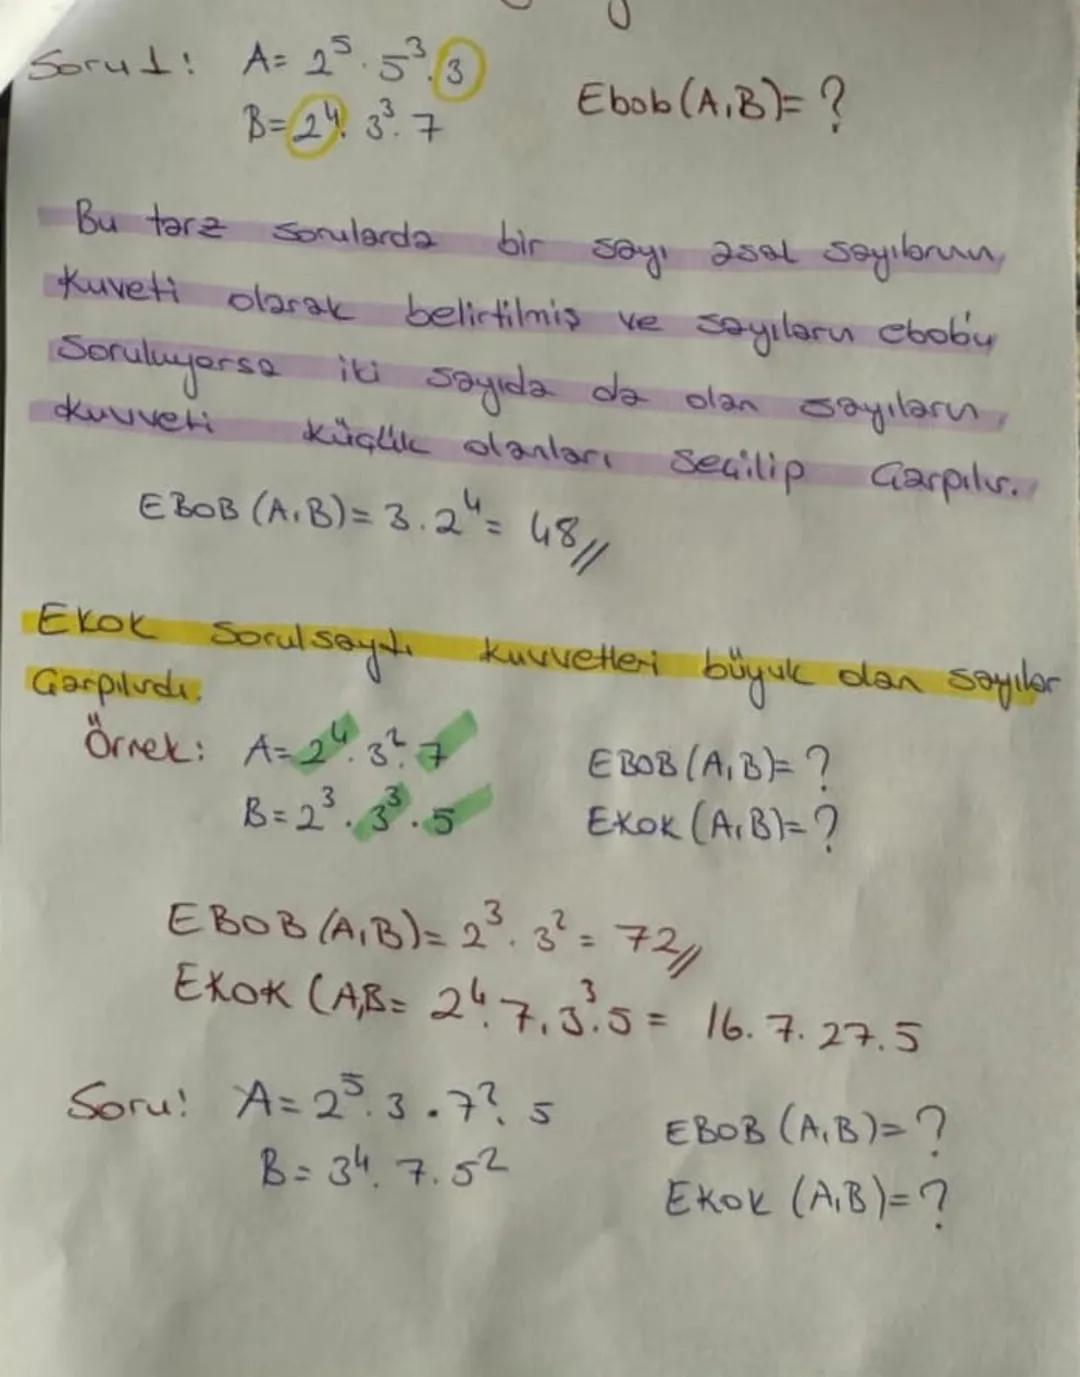 Soru 1: A = 2⁵ . 5³ . 3
Ebob (A,B) = ?
B = 2⁴ . 3³ . 7
Bu tarz sorularda bir sayı asal sayıların
kuveti olarak belirtilmiş ve sayıların ebob'u
soruluyorsa iki sayıda da olan sayıların
kuvveti küçük olanları seçilip çarpılır.
EBOB (A,B) = 3 . 2⁴ = 48 //
EKOK sorulsaydı kuvvetleri büyük olan sayılar
çarpılırdı.
Örnek: A = 2⁴ . 3² . 7
EBOB (A,B) = ?
B = 2³ . 3³ . 5
EKOK (A,B) = ?
EBOB (A,B) = 2³ . 3² = 72 //
EKOK (A,B = 2⁴ . 7 . 3³ . 5 = 16 . 7 . 27 . 5
Soru: A = 2⁵ . 3 . 7² . 5
EBOB (A,B) = ?
B = 3⁴ . 7 . 5²
EKOK (A,B) = ?